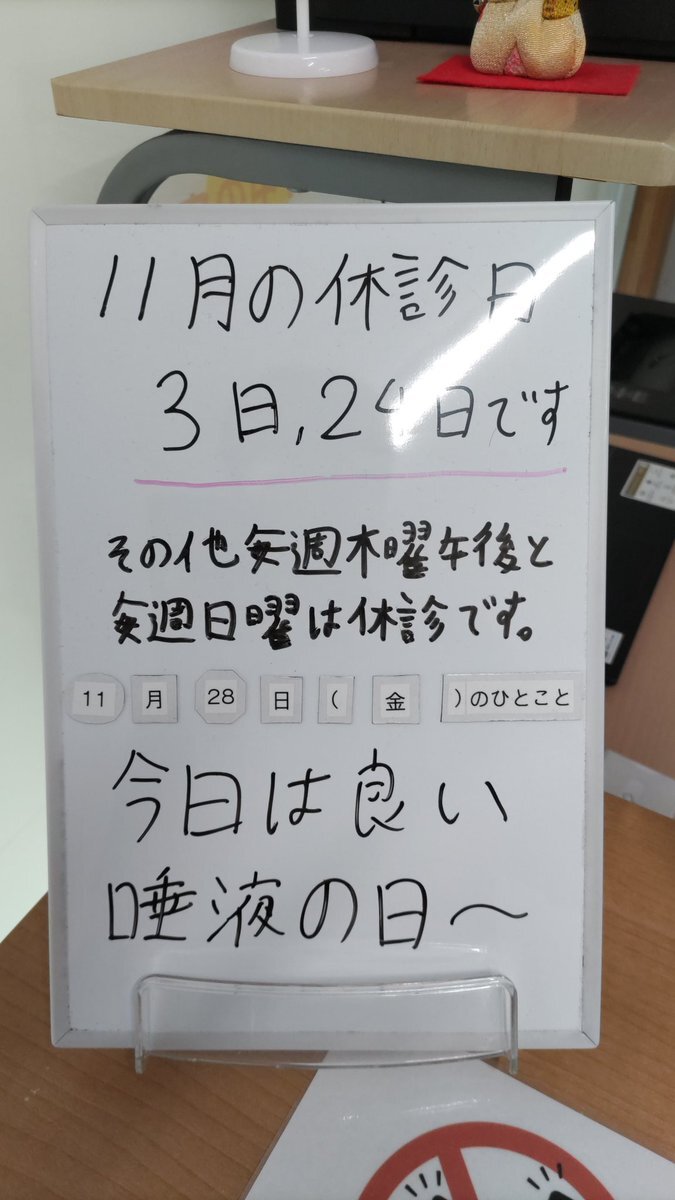 11月の休診日
3日,24日です
その他毎週木曜午後と
毎週日曜は休診です。
11月28日(金)のひとこと
今日は良い
唾液の日〜